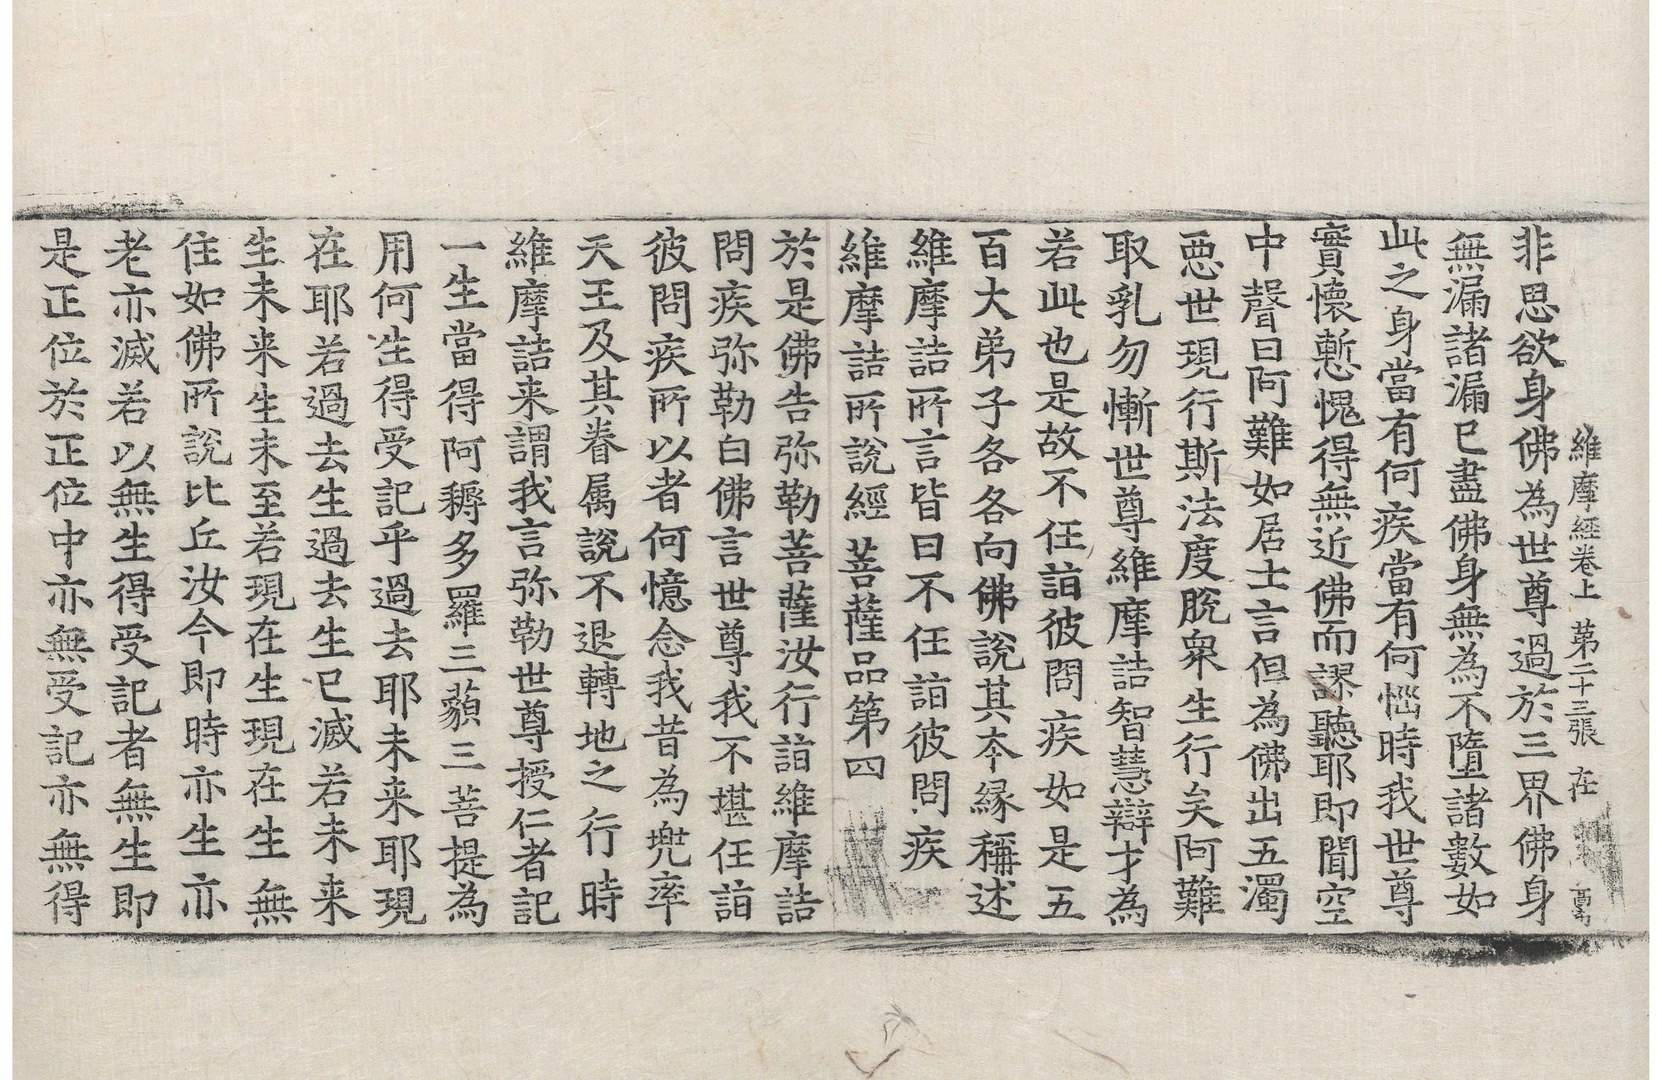 維摩經卷上 第二十三張 在
非思欲身佛為世尊過於三界佛身
無漏諸漏已盡佛身無為不墮諸數如
此之身當有何疾當有何惱時我世尊
實懷慙愧得無近佛而謬聽耶即聞空
中聲曰阿難如居士言但為佛出五濁
惡世現行斯法度脫衆生行矣阿難
取乳勿慚世尊維摩詰智慧辯才為
若此也是故不任詣彼問疾如是五
百大弟子各各向佛說其本緣稱述
維摩詰所言皆曰不任詣彼問疾
維摩詰所說經 菩薩品第四
於是佛告弥勒菩薩汝行詣維摩詰
問疾弥勒白佛言世尊我不堪任詣
彼問疾所以者何憶念我昔為兜率
天王及其眷属說不退轉地之行時
維摩詰来謂我言弥勒世尊授仁者記
一生當得阿耨多羅三藐三菩提為
用何生得受記乎過去耶未来耶現
在耶若過去生過去生已滅若未来
生未来生未至若現在生現在生無
住如佛所說比丘汝今即時亦生亦
老亦滅若以無生得受記者無生即
是正位於正位中亦無受記亦無得